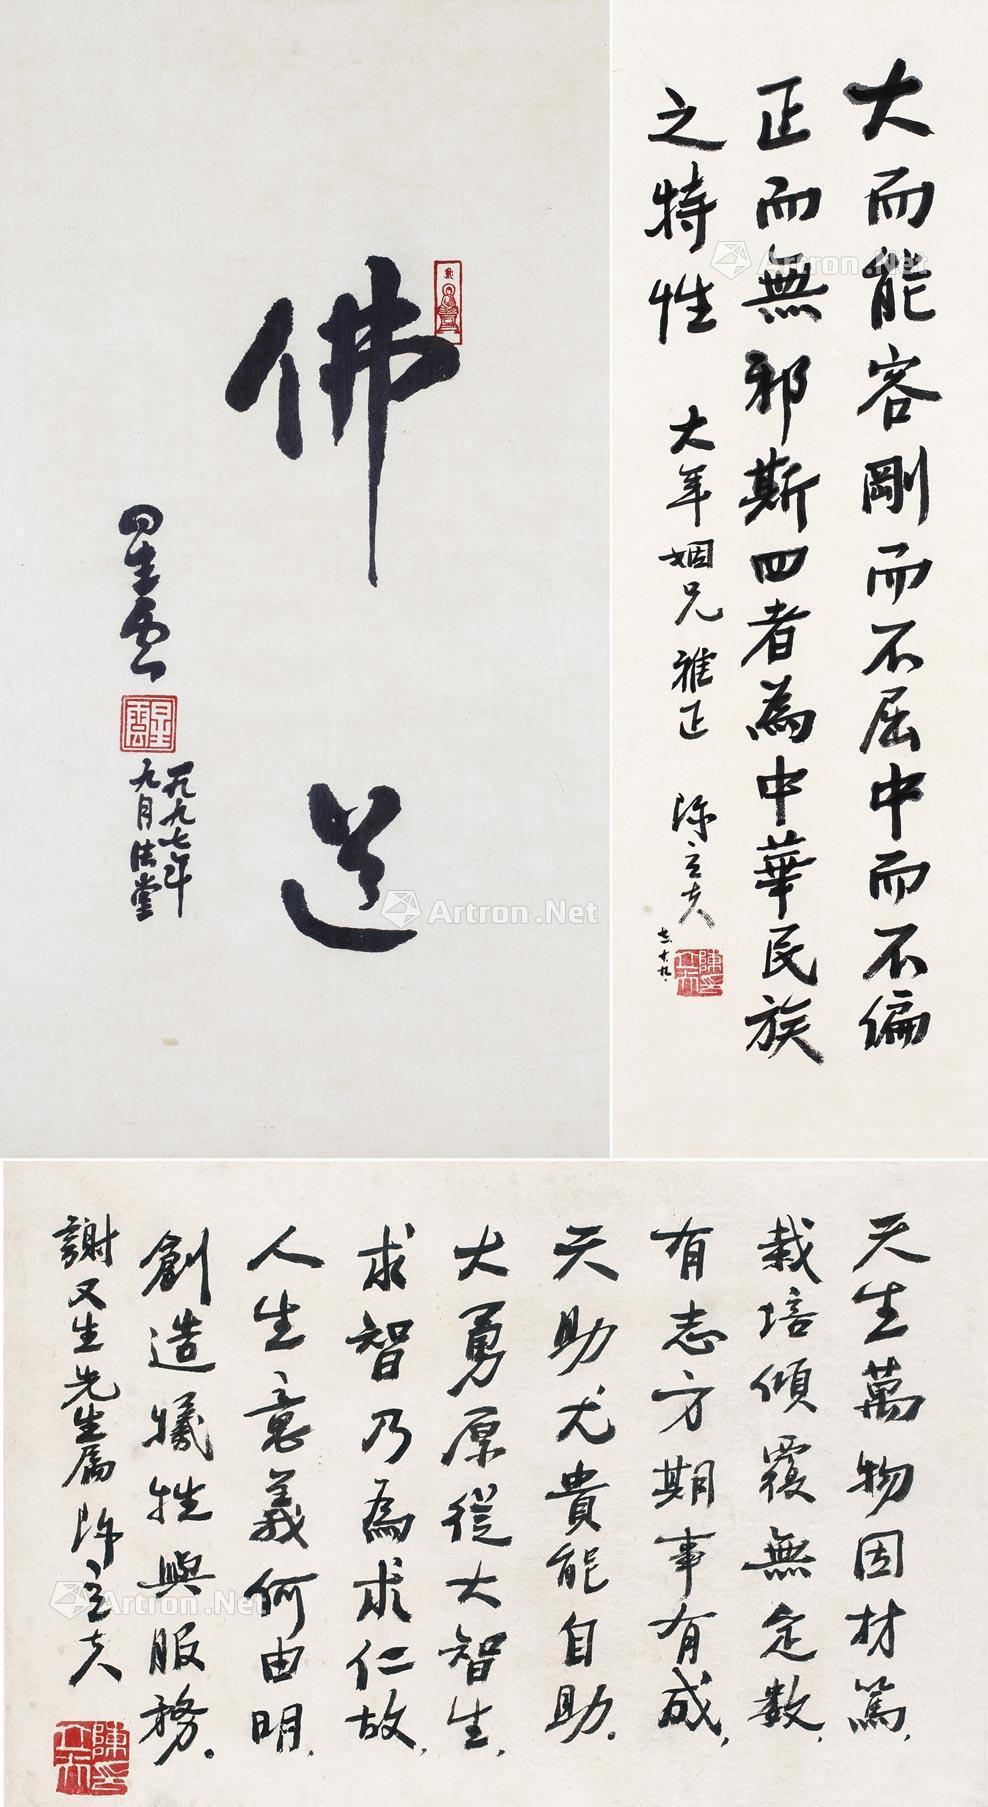 佛道
星雲
一九九七年
九月法堂
大而能容剛而不屈中而不偏
正而無邪斯四者為中華民族
之特性
大年姻兄雅正 陳立夫
天生萬物因材篤,
栽培傾覆無定數,
有志方期事有成,
天助尤貴能自助。
大勇原從大智生,
求智乃為求仁故,
人生意義何由明,
創造犧牲與服務。
謝又生先生屬 陳立夫
Artron.Net
Artron.Net
Artron.Net